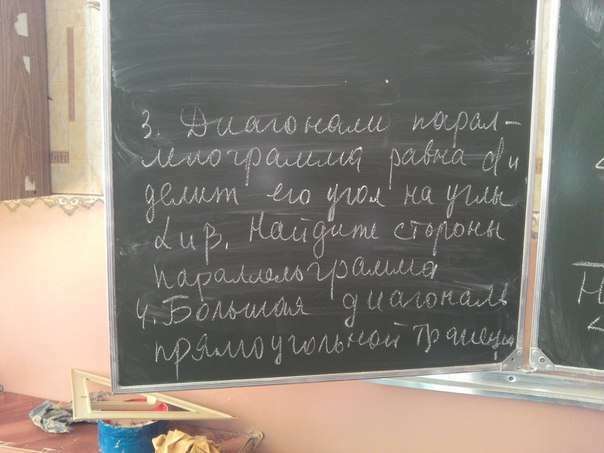 3. Диагонали парал-
лелограмма равна d и
делит его угол на углы
α и β. Найдите стороны
параллельграмма
4. Большая диагональ
прямоугольной трапеци